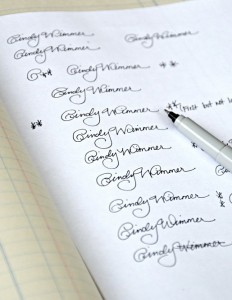 Cindy Wimmer Cindy Wimmer
Cindy Wimmer
C ** Cindy Wimmer
Cindy Wimmer
** Cindy Wimmer ** but not
Cindy Wimmer
Cindy Wimmer
Cindy Wimmer
Cindy Wimmer *
Cindy Wimmer *
Cindy Wimmer